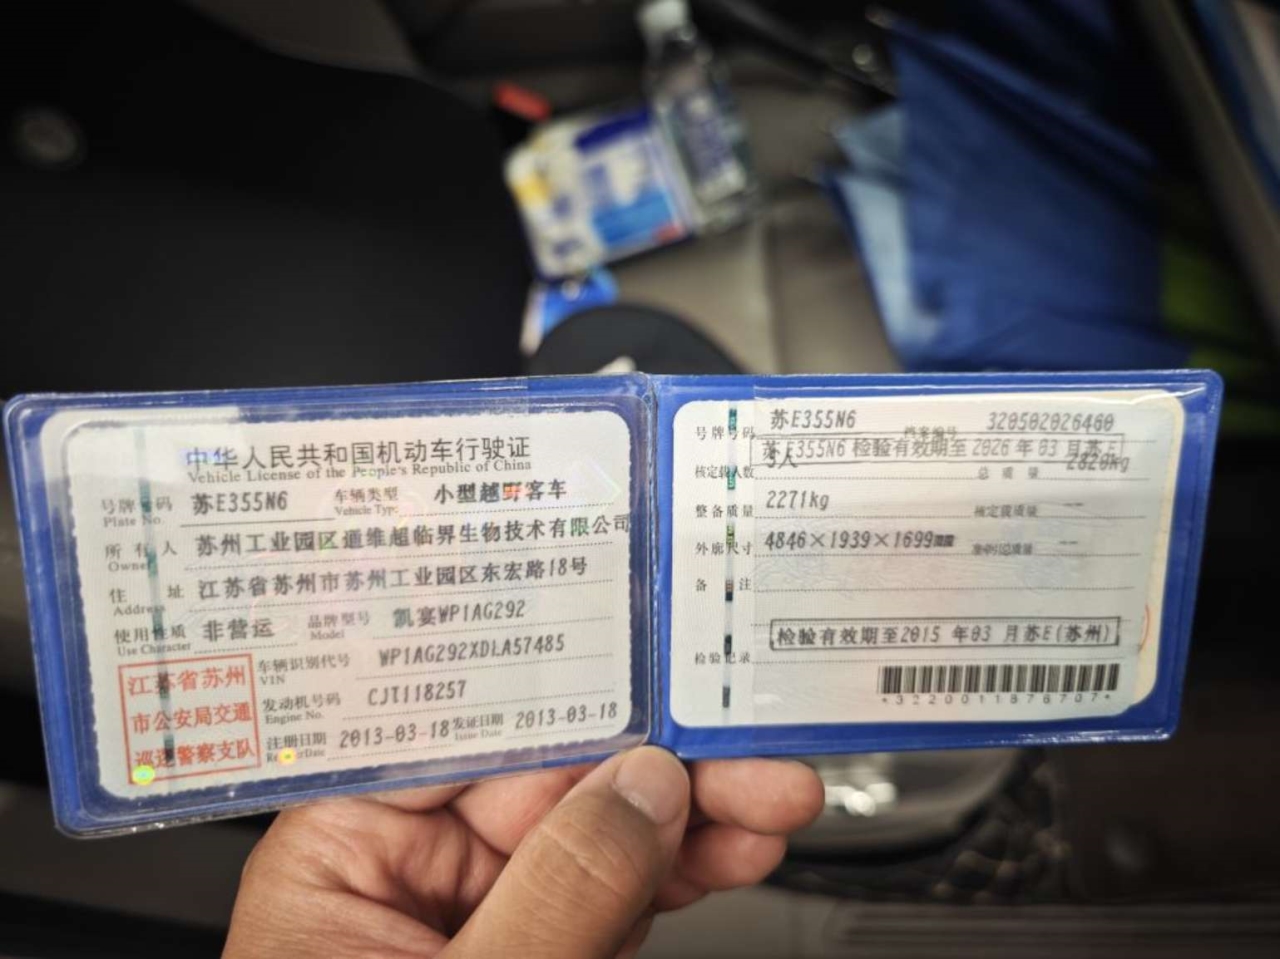 中华人民共和国机动车行驶证
Vehicle License of the People's Republic of China
号牌号码 苏E355N6 车辆类型 小型越野客车
Plate No. Vehicle Type
所有人 苏州工业园区通维超临界生物技术有限公司
Owner
住址 江苏省苏州市苏州工业园区东宏路18号
Address
使用性质 非营运 品牌型号 凯宴WP1AG292
Use Character Model
江苏省苏州
市公安局交通
巡逻警察支队
车辆识别代号 WP1AG292XDLA57485
VIN
发动机号码 CJT118257
Engine No.
注册日期 2013-03-18 发证日期 2013-03-18
Register Date Issue Date
号牌号码 苏E355N6 档案编号 320502026460
苏E355N6 检验有效期至 2026 年 03 月 苏E
核定载人数 5人 总质量 2820kg
整备质量 2271kg 核定载质量 --
外廓尺寸 4846×1939×1699mm 准牵引总质量 --
备注
检验有效期至2015 年03 月苏E(苏州)
检验记录
*3220011876707*